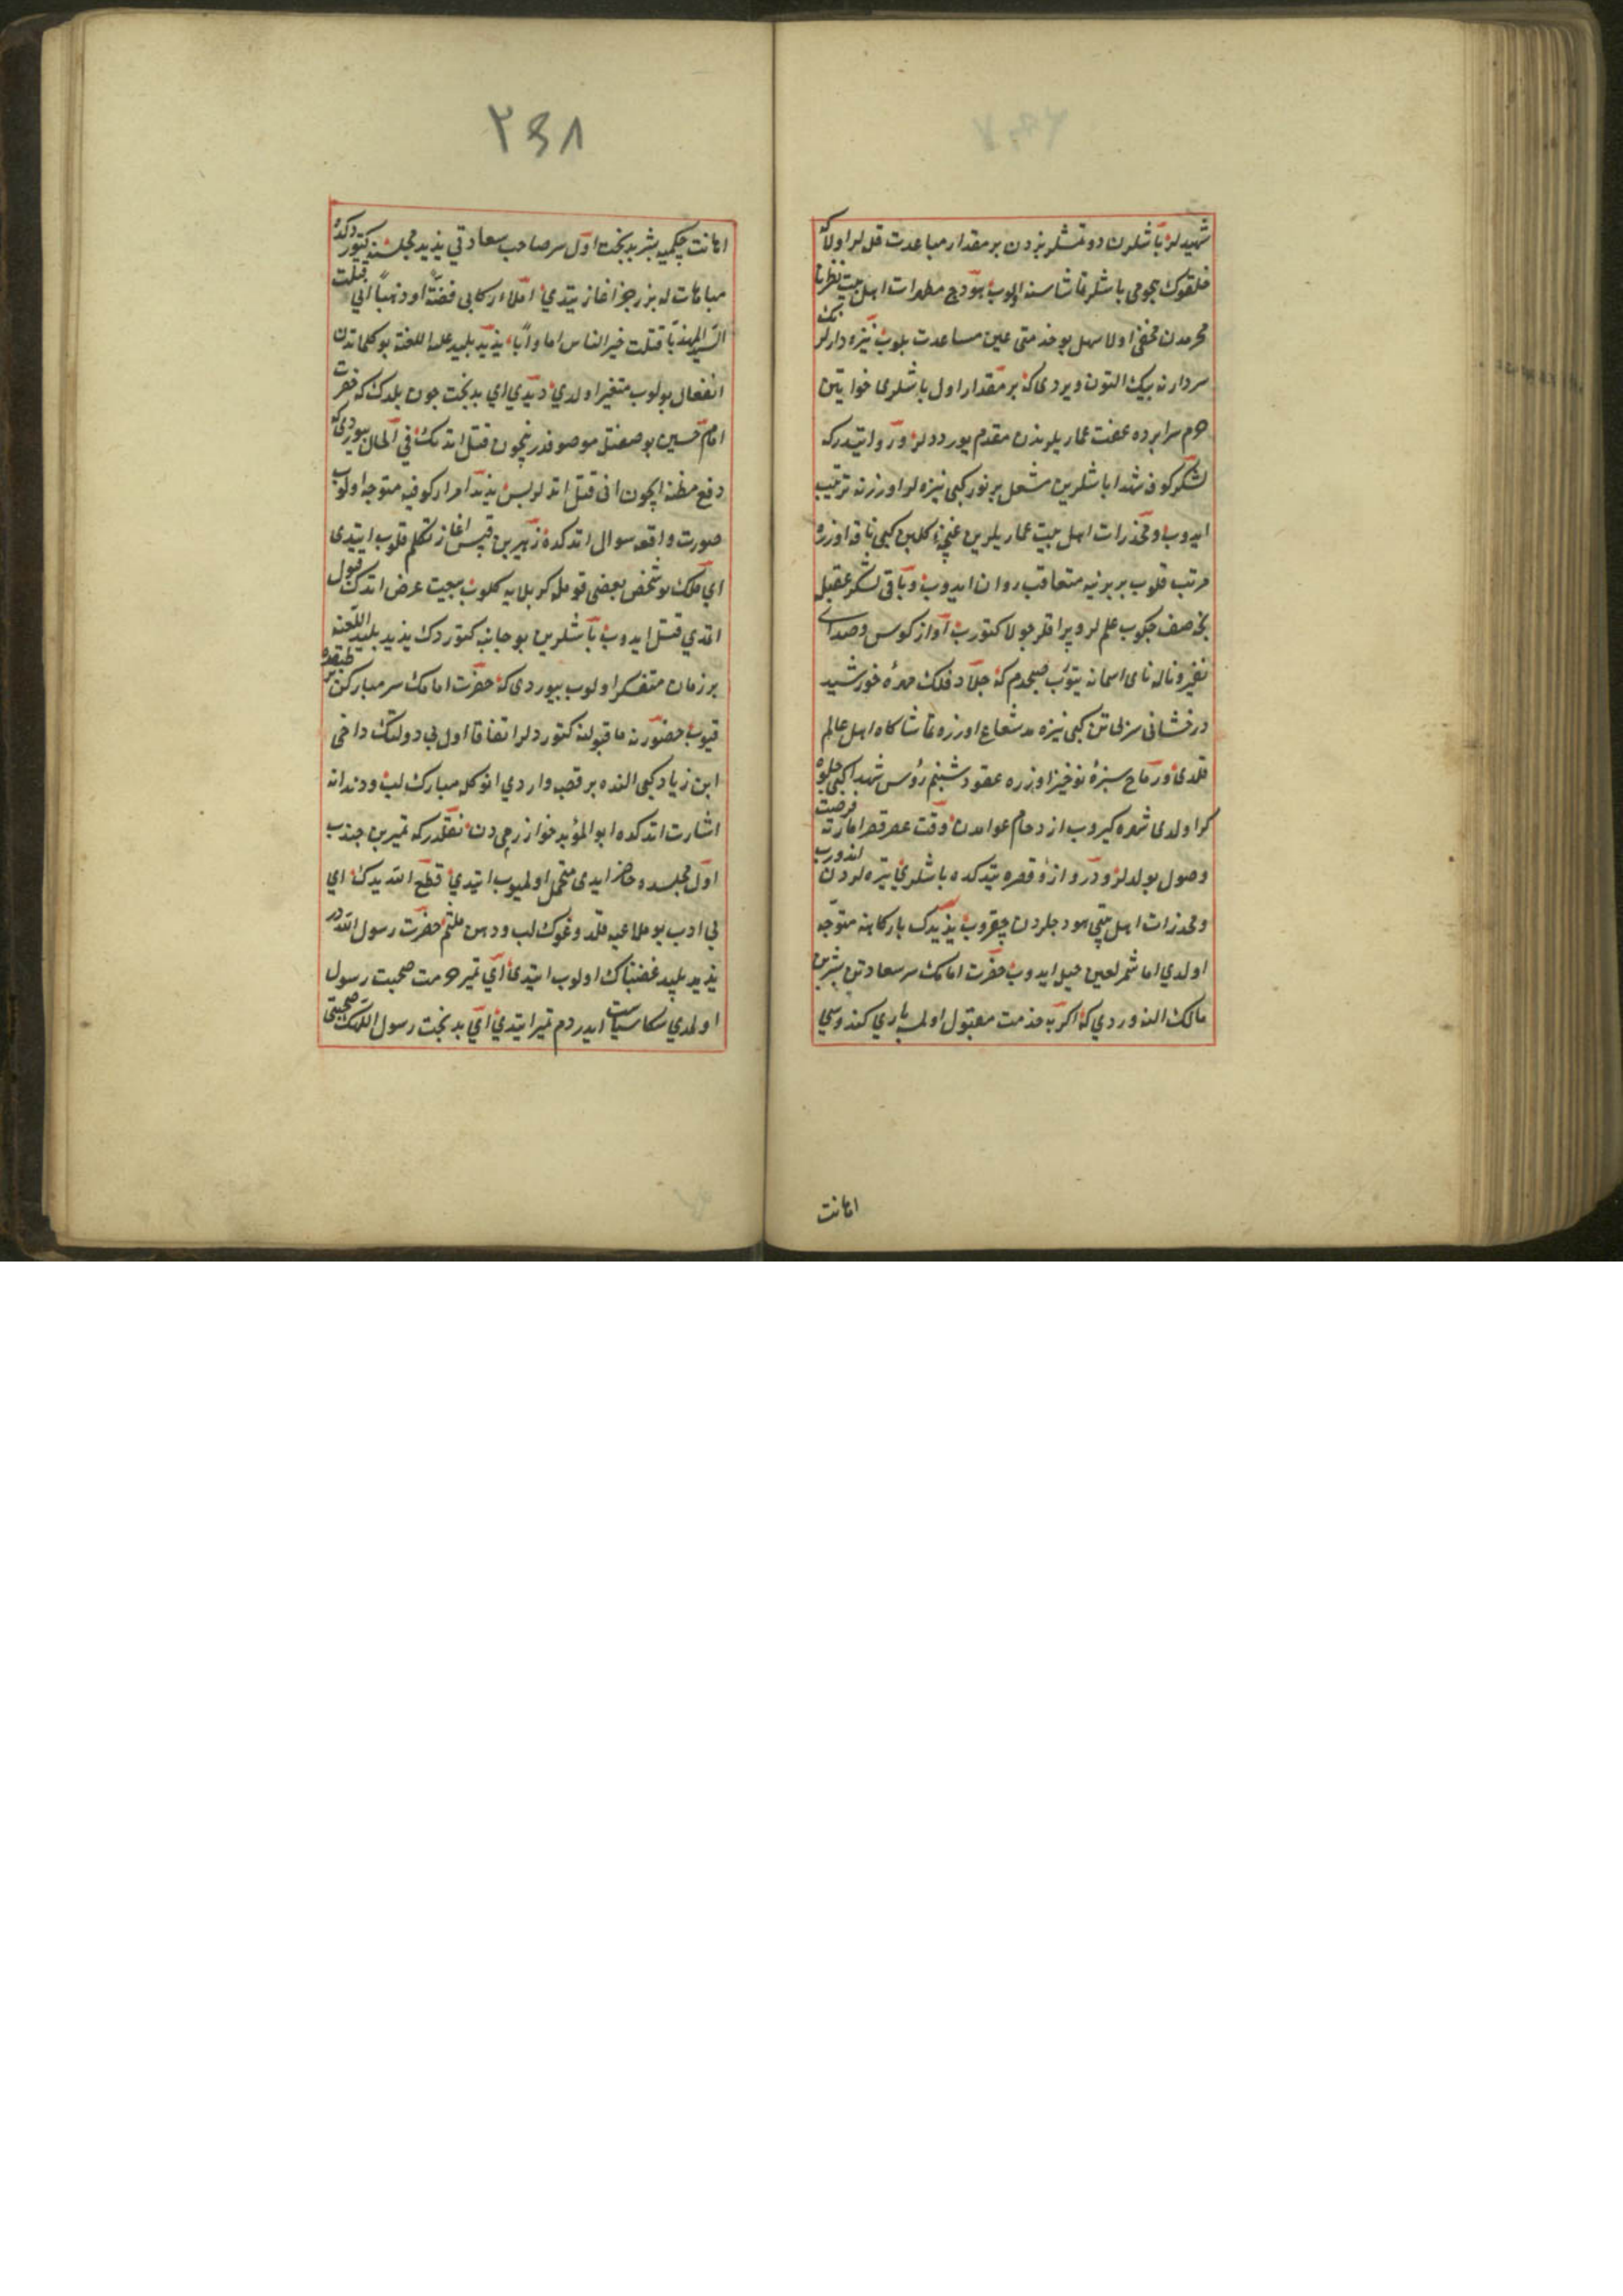 شهیدلرڭ باشلرن دوتمشلر بزدن بر مقدار مباعدت قلەلر اولاکه
خلقوڭ هجومی باشلر تماشاسنه اولوب هودج مطهرات اهل بیت نظر نا
محرمدن مخفی اولا سهل بو خدمتی عین مساعدت بلوب نیزه دارلر
سردارنه بیڭ التون ویردی که بر مقدار اول باشلری خواتین
حرم سراپرده عفت عماریلرندن مقدم یوردلر و روایتدر که
لشکر کوفه شهدا باشلرین مشعل پر نور کبی نیزه لر اوزرنه ترتیب
ایدوب و مخدرات اهل بیت عماریلرین غنچهٔ گلبن کبی ناقه اوزره
مرتب قلوب بربرینه متعاقب روان ایدوب و باقی لشکر عقبلرنجه
صف چکوب علملر و پیراقلر جولانه کتورب آواز کوس و صدای
نفیر و ناله نای اسمانه یتوب صبحدم که جلاد فلک مهرهٔ خورشید
درخشانی سر بی تن کبی نیزهٔ شعاع اوزره تماشاکاه اهل عالم
قلدی و رماح سبزهٔ نوخیز اوزره عقود شبنم رؤس شهدا کبی جلوه
کر اولدی شهره کیروب ازدحام عوامدن وقت عصر قصر امارته فرصت
وصول بولدلر و دروازهٔ قصره یتدکده باشلری نیزه لردن اندورب
و مخدرات اهل بیتی هودجلردن چقروب یزیدڭ بارکاهنه متوجه
اولدی اما شمر لعین حیل ایدوب حضرت امامڭ سر سعادتن بشر بن
مالک النه وردی که اکر بو خدمت مقبول اولمسه باری کندوسی
اهانت
۲۳۸
اهانت چکمیه بشر بدبخت اول سر صاحب سعادتی یزید مجلسنه کتوردکده
مباهات له بر رجز اغاز یتدی املاء رکابی فضة او ذهبا انی قتلت
السید المهذبا قتلت خیر الناس اما و ابا یزید بلید علیه اللعنه بو کلماتدن
انفعال بولوب متغیر اولدی دیدی ای بدبخت چون بلدڭ که حضرت
امام حسین بو صفتله موصوفدر نیچون قتل اتدڭ فی الحال بیوردی که
دفع مظنه ایچون انی قتل اتدلر پس یزید امرار کوفیه متوجه اولوب
صورت واقعه سوال اتدکده زهیر بن قیس اغاز تکلم قلوب ایتدی
ای ملک بو شخص بعضی قومله کربلایه کلوب بیعت عرض اتدڭ قبول
اتمدی قتل ایدوب باشلرین بو جانبه کتوردڭ یزید بلید اللعنه
بر زمان متفکر اولوب بیوردی که حضرت امامڭ سر مبارکن بر طبقده
قیوب حضورنه ما قبولنه کتوردلر اتفاقا اول بی دولتڭ داخی
ابن زیاد کبی النده بر قصب واردی انوکله مبارک لب و دندانه
اشارت اتدکده ابو المؤید خوارزمی دن نقلدر که ثمیر بن جندب
اول مجلسده حاضر ایدی متحمل اولمیوب ایتدی قطع الله یدک ای
بی ادب بو ملاعبه قلدوغوڭ لب و دهن ملثم حضرت رسول اللهدر
یزید پلید غضبناک اولوب ایتدی ای ثمیر حرمت صحبت رسول
اولمدی سکا سیاست ایدردم ثمیر ایتدی ای بدبخت رسول اللهڭ صحبتی